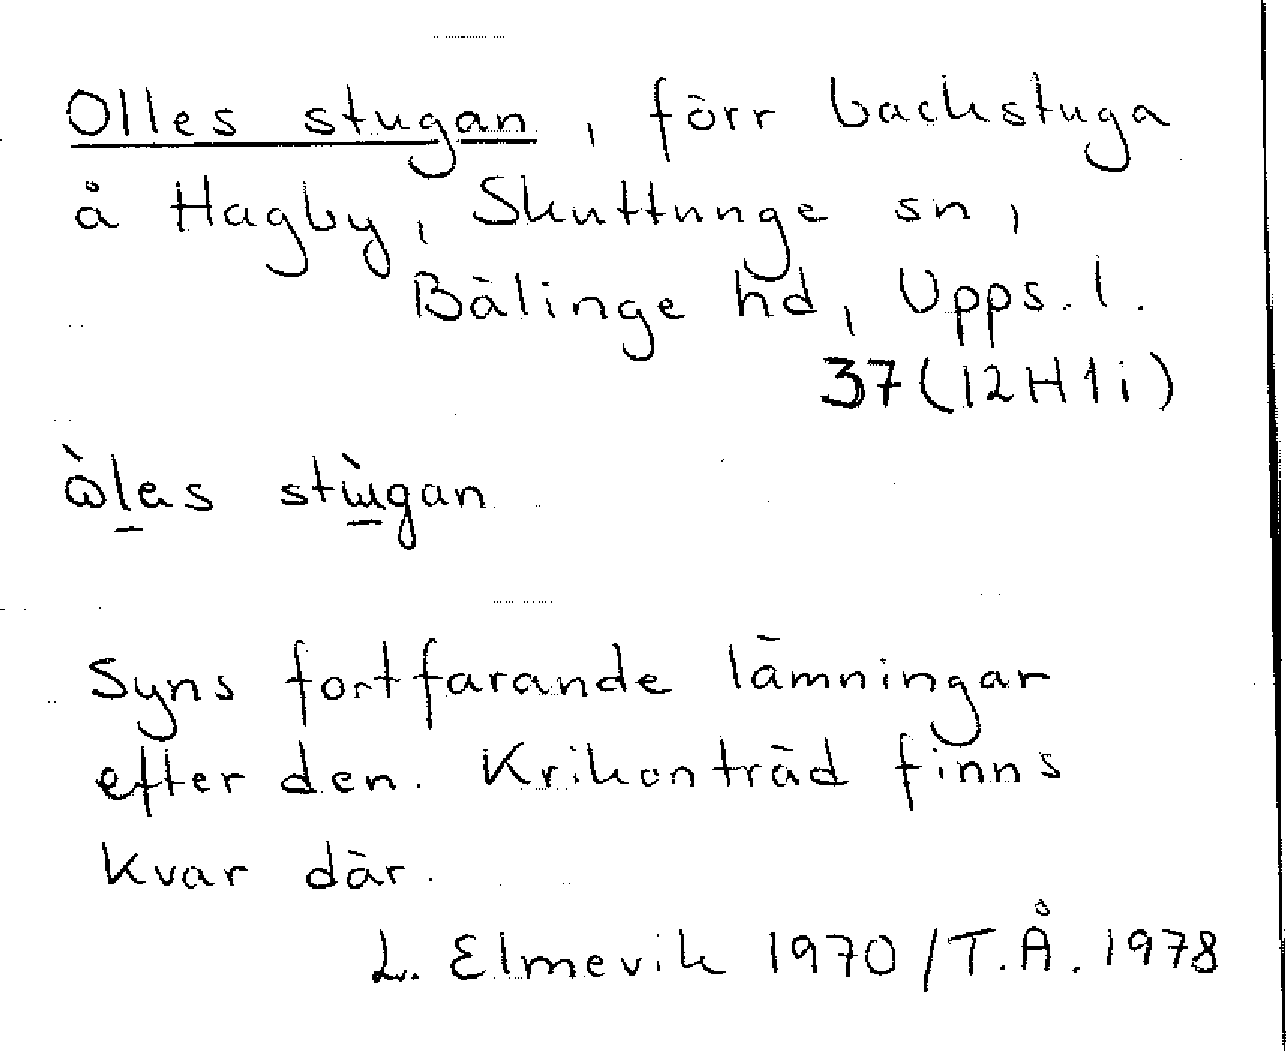 Olles stugan, förr backstuga
å Hagby, Skuttunge sn,
Bälinge hd, Upps. l.
37 (12H1i)
stugan
Syns fortfarande lämningar
efter den. Krikonträd finns
kvar där.
L. Elmevik 1970/T.Å. 1978